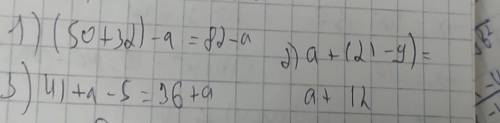 1) (50+32)-a = 82-a
2) a + (21-9) =
a + 12
3) 41+a-5=36+a